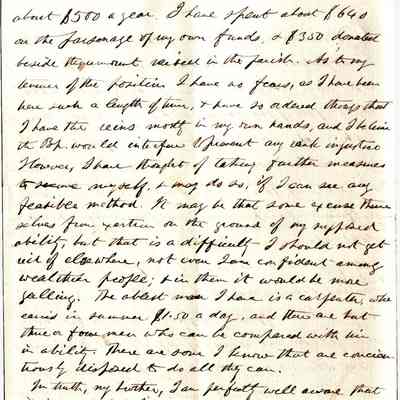 about $500 a year. I have spent about $640
on the parsonage of my own funds, & $350 donated
beside the amount raised in the parish. As to my
tenure of the position I have no fears, as I have been
here such a length of time, & have so ordered things that
I have the reins mostly in my own hands, and I believe
the Bp. would interfere to prevent any rank injustice
However, I have thought of taking further measures
to secure myself, & may do so, if I can see any
feasible method. It may be that some excuse them
selves from exertion on the ground of my supposed
ability, but that is a difficulty I should not get
rid of elsewhere, not even I am confident among
wealthier people; & in them it would be more
galling. The ablest man I have is a carpenter, who
earns in summer $1.50 a day, and there are but
three or four men who can be compared with him
in ability. There are some I know that are conscien
tiously disposed to do all they can.
In truth, my brother, I am perfectly well aware that